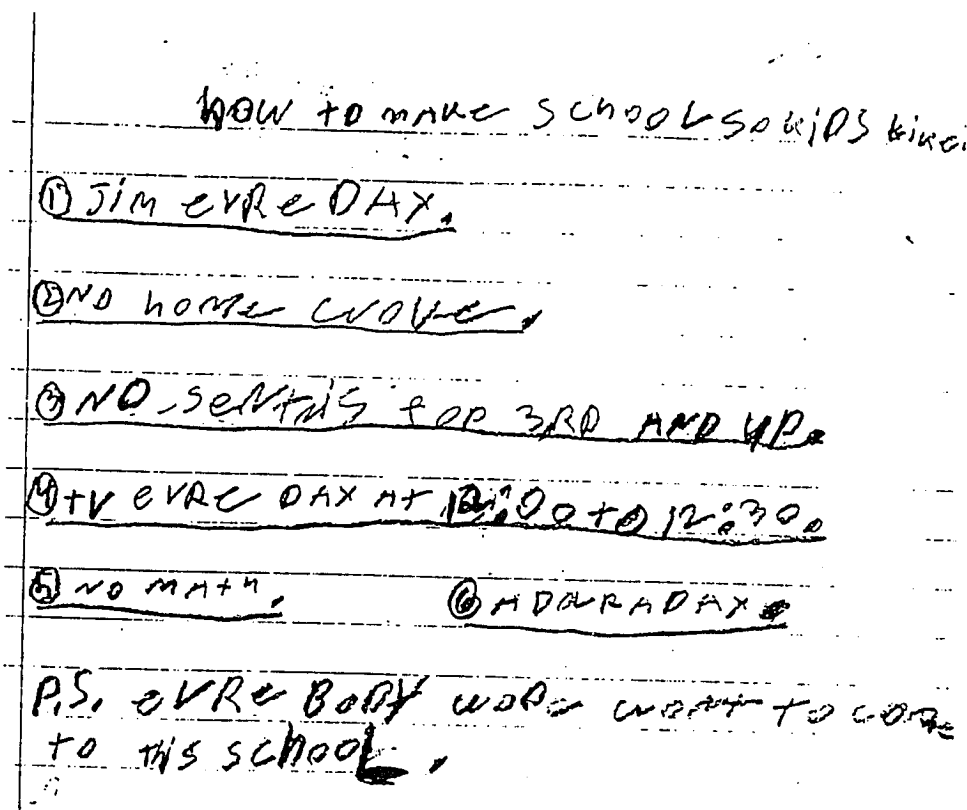 HOW to MAKE SCHOOL SO KiDS LiKe i
① JiM eVRe DAY.
② NO HOMe WOVe.
③ NO SeNTNiS foR 3RD AND UP.
④ tV eVRe DAY At 12:00 to 12:30.
⑤ NO MAtH. ⑥ A DAY.
P.S. eVRe BODY WODe WONT TO COMe
to THiS SCHOOL.